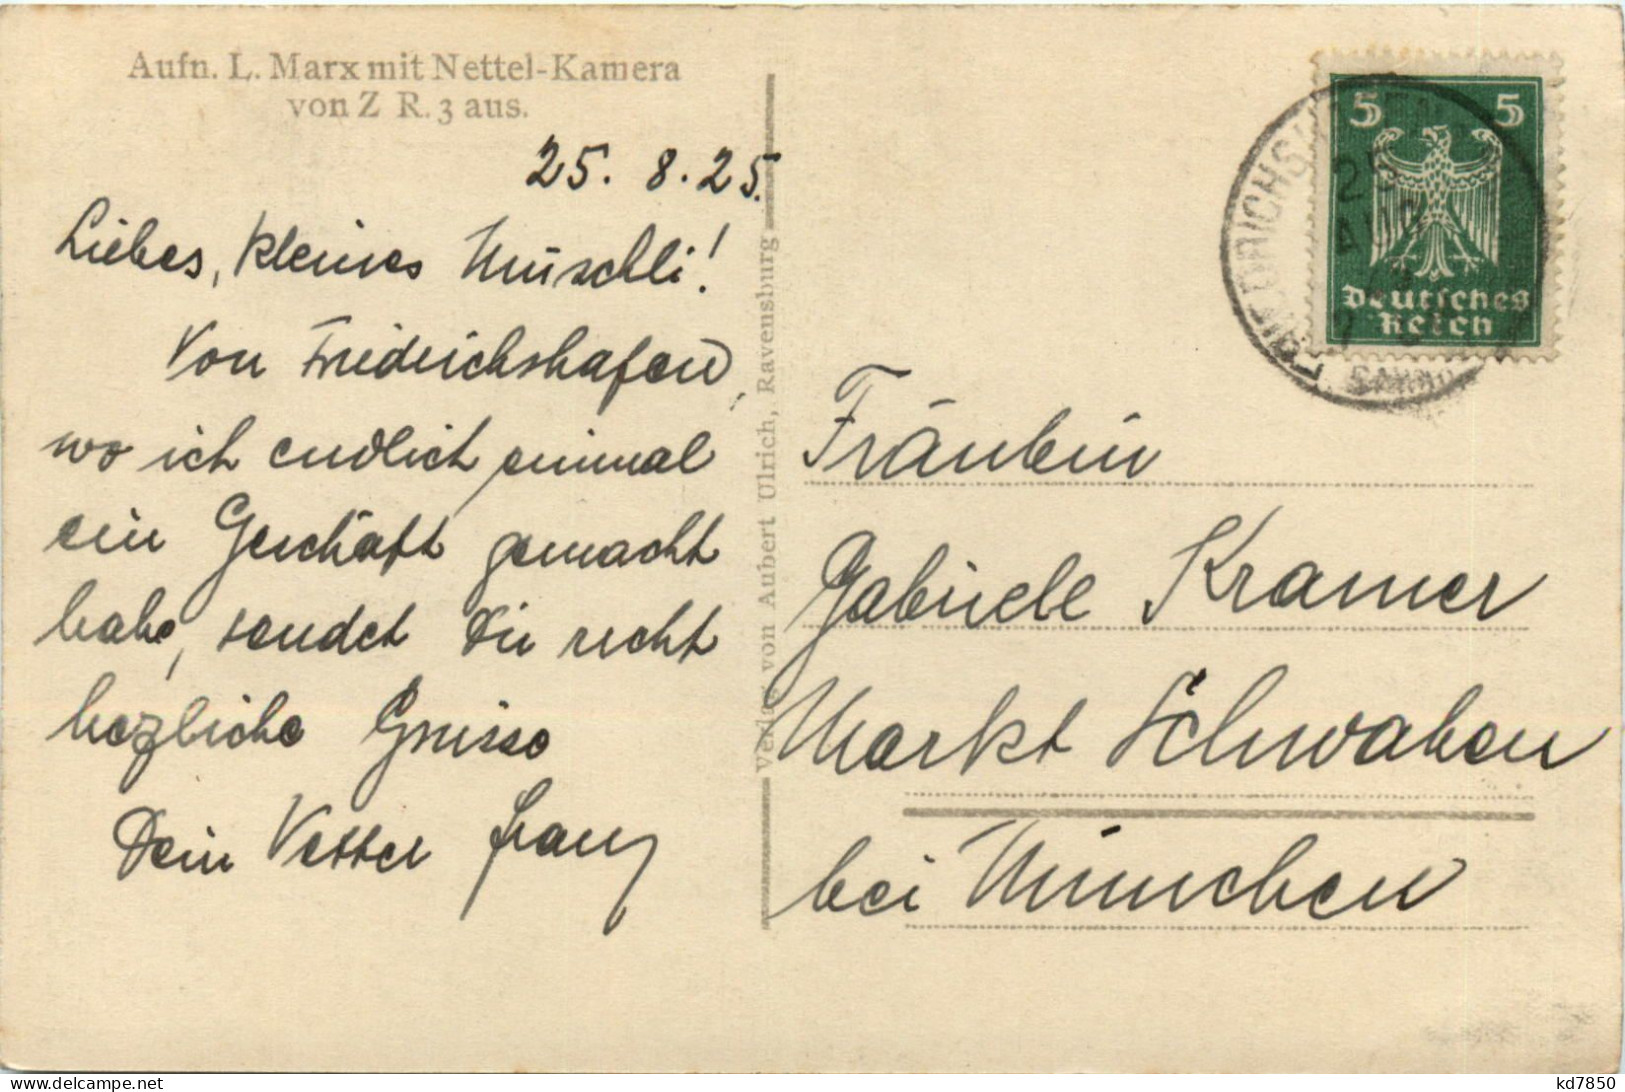 Aufn. L. Marx mit Nettel-Kamera
von Z R. 3 aus.
25. 8. 25.
Liebes, kleines Muschli!
Von Friedrichshafen,
wo ich endlich einmal
ein Geschäft gemacht
habe, sendet Dir recht
herzliche Grüsse
Dein Vetter Franz
Verlag von Aubert Ulrich, Ravensburg
5 5
Deutsches
Reich
25
AUG
Fräulein
Gabriele Kramer
Markt Schwaben
bei München
delcampe.net
kd7850